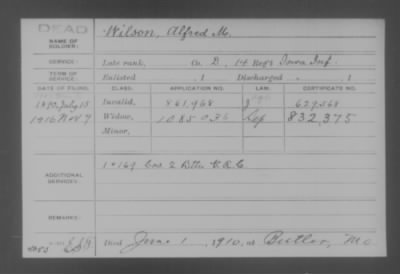 DEAD
NAME OF SOLDIER: Wilson, Alfred M.
SERVICE: Late rank, Co. D, 14 Reg't Iowa Inf.
TERM OF SERVICE: Enlisted , 1 Discharged , 1
DATE OF FILING. CLASS. APPLICATION NO. LAW. CERTIFICATE NO.
1890, July 15 Invalid, 861,968 629568
1916 Nov 7 Widow, 1085035 Sep 832,375
Minor,
ADDITIONAL SERVICES: 169 Co 2 Btn V.R.C
REMARKS:
Died June 1, 1910, at Butler, Mo.